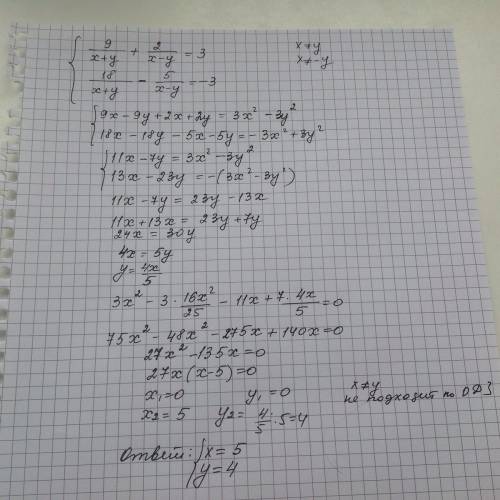 { 9/(x+y) + 2/(x-y) = 3     x≠y
18/(x+y) - 5/(x-y) = -3     x≠-y
{ 9x - 9y + 2x + 2y = 3x² - 3y²
18x - 18y - 5x - 5y = -3x² + 3y²
{ 11x - 7y = 3x² - 3y²
13x - 23y = -(3x² - 3y²)
11x - 7y = 23y - 13x
11x + 13x = 23y + 7y
24x = 30y
4x = 5y
y = 4x/5
3x² - 3 · 16x²/25 - 11x + 7 · 4x/5 = 0
75x² - 48x² - 275x + 140x = 0
27x² - 135x = 0
27x (x-5) = 0
x₁ = 0     y₁ = 0     x≠y не подходит по ОДЗ
x₂ = 5     y₂ = 4/5 · 5 = 4
Ответ: { x = 5
y = 4